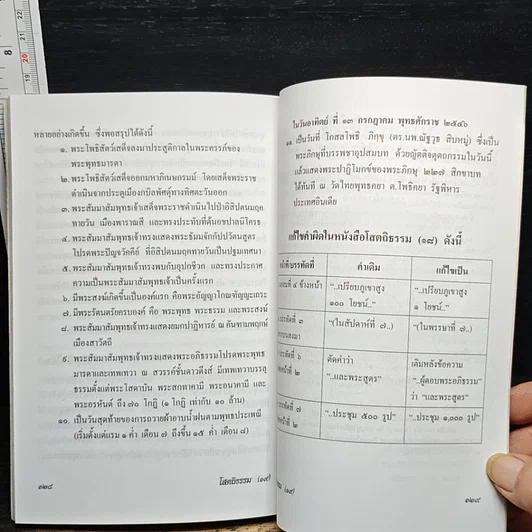 หลายอย่างเกิดขึ้น ซึ่งพอสรุปได้ดังนี้
๑. พระโพธิสัตว์เสด็จลงมาประสูติกาลในพระครรภ์ของ
พระพุทธมารดา
๒. พระโพธิสัตว์เสด็จออกมหาภิเนษกรมณ์ โดยเสด็จพระราช
ดำเนินจากประตูเมืองกบิลพัศดุ์ทางทิศตะวันออก
๓. พระสัมมาสัมพุทธเจ้าเสด็จพระราชดำเนินไปป่าอิสิปตนมฤค
ทายวัน เมืองพาราณสี และทรงประทับที่ต้นอชปาลนิโครธ
๔. พระสัมมาสัมพุทธเจ้าทรงแสดงพระธัมมจักกัปปวัตนสูตร
โปรดพระปัญจวัคคีย์ ที่อิสิปตนมฤคทายวันเป็นปฐมเทศนา
๕. พระสัมมาสัมพุทธเจ้าทรงพบกับอุปกาชีวก และทรงประกาศ
ความเป็นพระสัมมาสัมพุทธเจ้าเป็นครั้งแรก
๖. มีพระสงฆ์เกิดขึ้นเป็นองค์แรก คือพระอัญญาโกณฑัญญะเถระ
๗. มีพระรัตนตรัยครบองค์ คือ พระพุทธ พระธรรม และพระสงฆ์
๘. พระสัมมาสัมพุทธเจ้าทรงแสดงยมกปาฏิหารย์ ณ คันทามพฤกษ์
เมืองสาวัตถี
๙. พระสัมมาสัมพุทธเจ้าทรงแสดงพระอภิธรรมโปรดพระพุทธ
มารดาและเทพเทวา ณ สวรรค์ชั้นดาวดึงส์ มีเทพเทวาบรรลุ
ธรรมตั้งแต่พระโสดาบัน พระสกทาคามี พระอนาคามี และ
พระอรหันต์ ถึง ๘๐ โกฏิ (๑ โกฏิ เท่ากับ ๑๐ ล้าน)
๑๐. เป็นวันสุดท้ายของการถวายผ้าอาบน้ำฝนตามพุทธประเพณี
(เริ่มตั้งแต่แรม ๑ ค่ำ เดือน ๗ ถึงขึ้น ๑๕ ค่ำ เดือน ๘)
๑๒๘ โสตถิธรรม (๑๙)
ในวันอาทิตย์ ที่ ๑๓ กรกฎาคม พุทธศักราช ๒๕๔๖
๑๑. เป็นวันที่ โกสลโพธิ ภิกฺขุ (ดร.นพ.ณัฐวุธ สิบหมู่) ซึ่งเป็น
พระภิกษุที่บรรพชาอุปสมบท ด้วยญัตติจตุตถกรรมในวันนี้
แล้วแสดงพระปาฏิโมกข์ของพระภิกษุ ๒๒๗ สิกขาบท
ได้ทันที ณ วัดไทยพุทธคยา ต.โพธิคยา รัฐพิหาร
ประเทศอินเดีย
แก้ไขคำผิดในหนังสือโสตถิธรรม (๑๘) ดังนี้
บรรทัดที่ คำเดิม แก้ไขเป็น
ที่ ๔ ข้างหน้า “..เปรียบภูเขาสูง “..เปรียบภูเขาสูง
๑๐๐ โยชน์..” ๑ โยชน์..”
บรรทัดที่ ๓ “(ในสัปดาห์ที่ ๗..) “(ในพรรษาที่ ๗..)
บรรทัดที่ ๖ ตัดคำว่า เติมหลังข้อความ
ที่ ๑ “..และพระสูตร” “..ผู้ตอบพระอภิธรรม”
ว่า “และพระสูตร”
บรรทัดที่ ๗ “..ประชุม ๕๐๐ รูป” “..ประชุม ๑,๐๐๐ รูป”
ที่ ๒
(๑๙) ๑๒๙